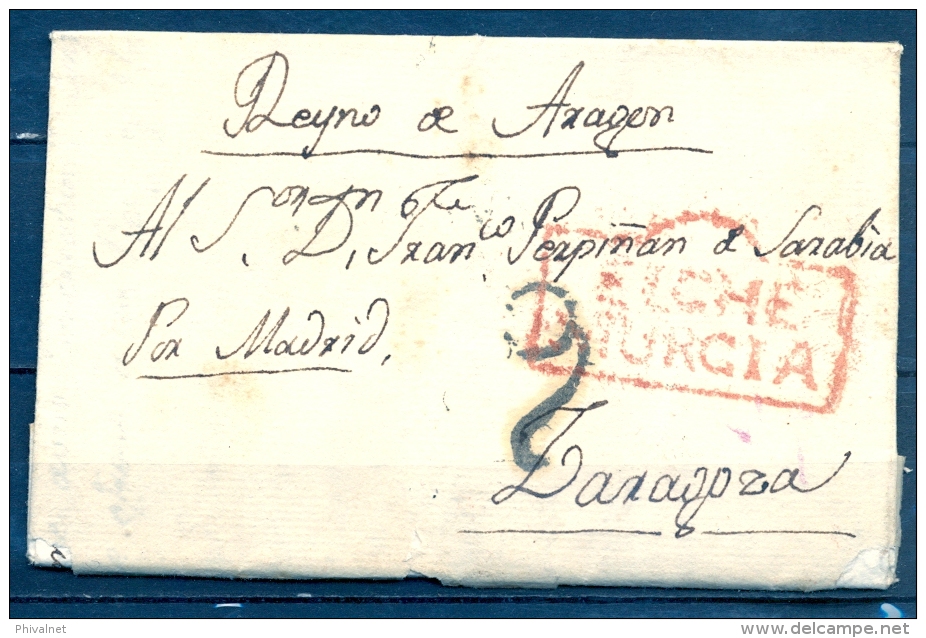 Reyno de Aragon
Al S.or D.n Fran.co Perpiñan de Sarabia
Por Madrid,
ELCHE
MURCIA
Zaragoza
Phivalnet
delcampe.net